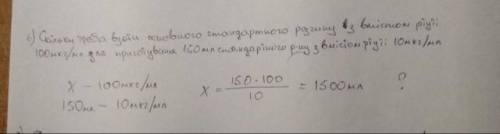 6) Скільки треба взяти основного стандартного розчину з вмістом ртуті
100мкг/мл для приготування 150мл стандартного р-ну з вмістом ртуті 10мкг/мл
X – 100мкг/мл
150мл – 10мкг/мл
X = 150·100 / 10 = 1500мл ?